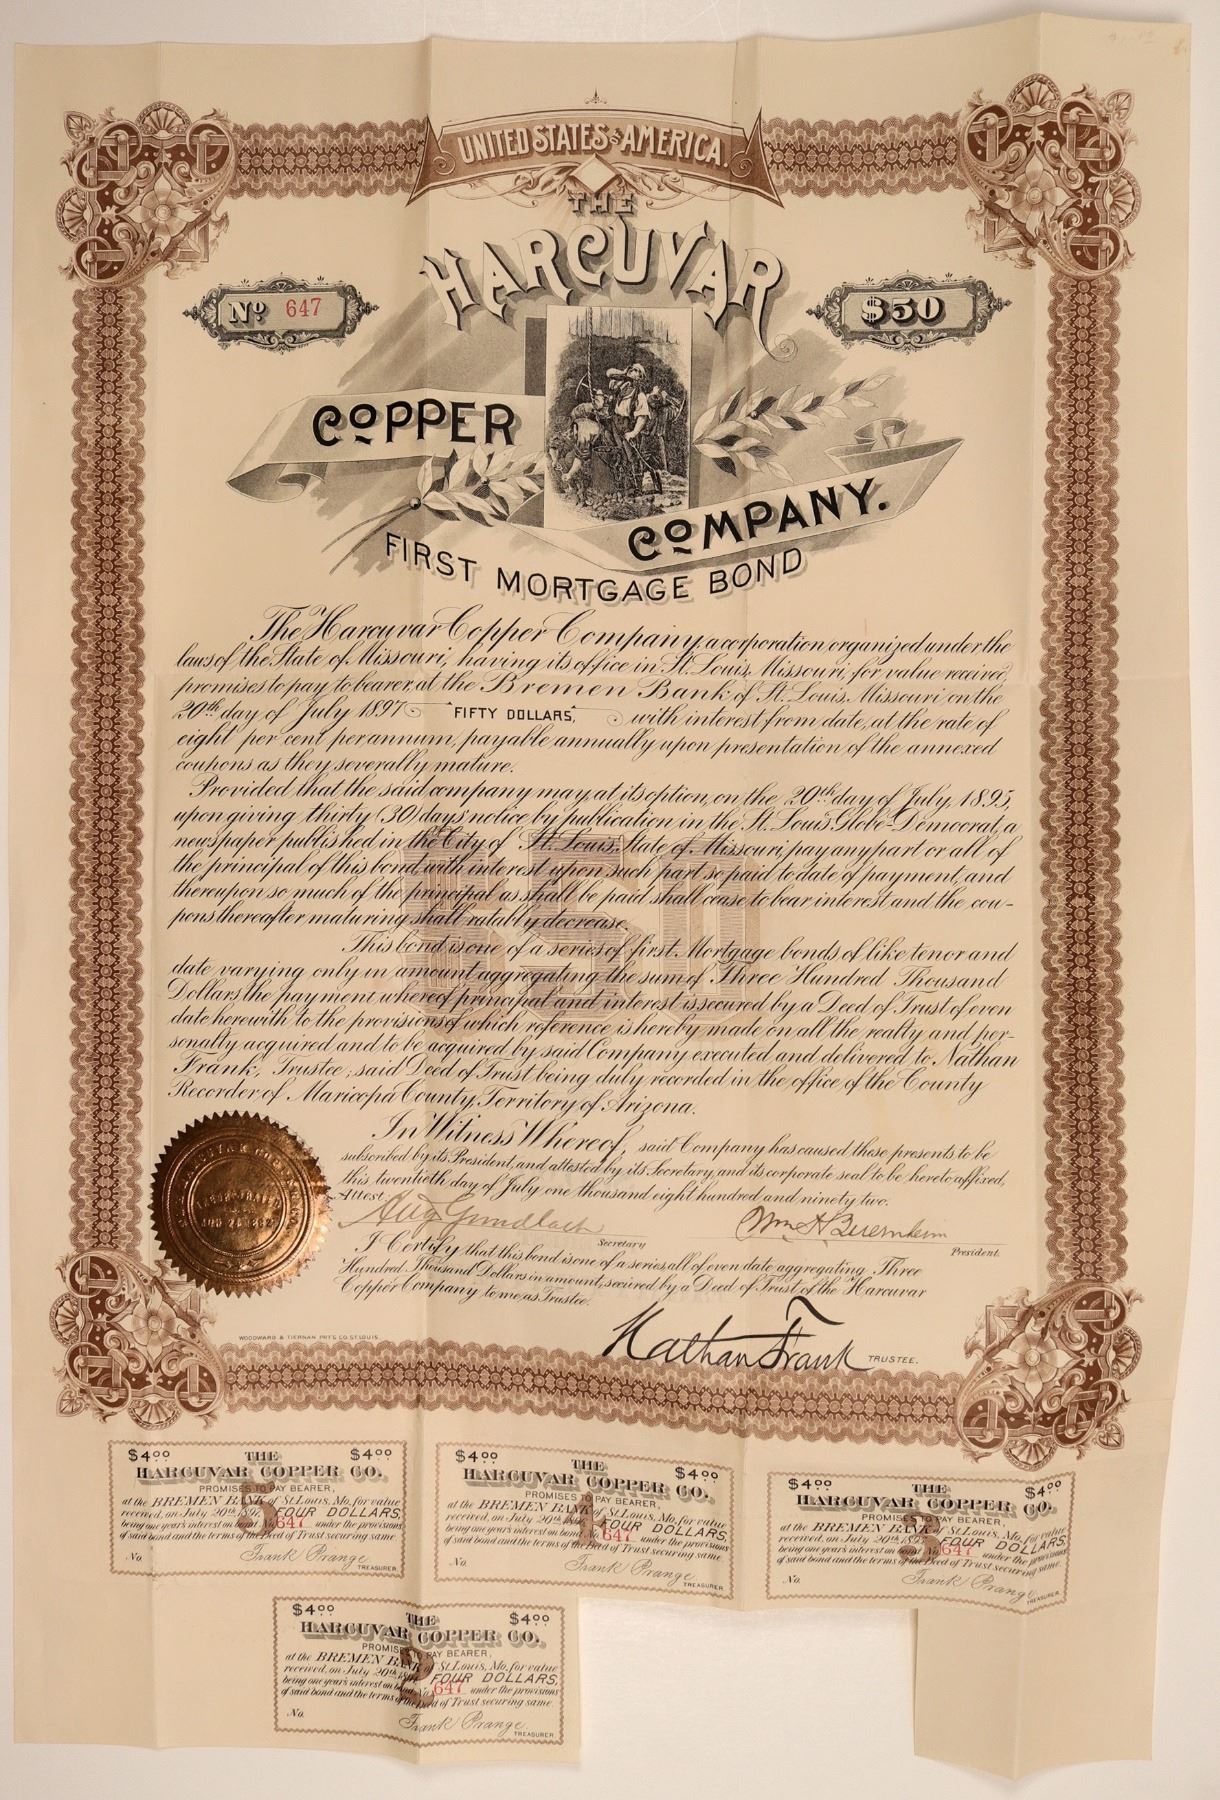 UNITED STATES OF AMERICA.
THE
HARCUVAR
No 647
$50
COPPER
COMPANY.
FIRST MORTGAGE BOND
The Harcuvar Copper Company, a corporation organized under the
laws of the State of Missouri, having its office in St. Louis, Missouri, for value received,
promises to pay to bearer, at the Bremen Bank of St. Louis, Missouri, on the
20th day of July 1897 FIFTY DOLLARS, with interest from date, at the rate of
eight per cent per annum, payable annually upon presentation of the annexed
coupons as they severally mature.
Provided that the said company may, at its option, on the 20th day of July, 1895,
upon giving thirty (30) days' notice by publication in the St. Louis Globe-Democrat, a
newspaper published in the City of St. Louis, State of Missouri, pay any part or all of
the principal of this bond, with interest upon such part so paid to date of payment, and
thereupon so much of the principal as shall be paid shall cease to bear interest and the cou-
pons thereafter maturing shall ratably decrease.
This bond is one of a series of first Mortgage bonds of like tenor and
date varying only in amount aggregating the sum of Three Hundred Thousand
Dollars, the payment whereof principal and interest is secured by a Deed of Trust of even
date herewith to the provisions of which reference is hereby made, on all the realty and per-
sonalty acquired and to be acquired by said Company executed and delivered to Nathan
Frank, Trustee; said Deed of Trust being duly recorded in the office of the County
Recorder of Maricopa County, Territory of Arizona.
In Witness Whereof, said Company has caused these presents to be
subscribed by its President, and attested by its Secretary, and its corporate seal to be hereto affixed,
this twentieth day of July one thousand eight hundred and ninety two.
Attest.
Aug. Gundlach Secretary
Wm H Buernheim President.
I Certify that this bond is one of a series all of even date aggregating Three
Hundred Thousand Dollars in amount, secured by a Deed of Trust of the Harcuvar
Copper Company to me as Trustee.
Nathan Frank TRUSTEE.
WOODWARD & TIERNAN PRT'G CO. ST. LOUIS.
$4.00 THE $4.00
HARCUVAR COPPER CO.
PROMISES TO PAY BEARER,
at the BREMEN BANK of St. Louis, Mo. for value
received, on July 20th 1897 FOUR DOLLARS,
being one year's interest on bond No. 647 under the provisions
of said bond and the terms of the Deed of Trust securing same.
No.
Frank Prange
TREASURER.
$4.00 THE $4.00
HARCUVAR COPPER CO.
PROMISES TO PAY BEARER,
at the BREMEN BANK of St. Louis, Mo. for value
received, on July 20th FOUR DOLLARS,
being one year's interest on bond No. 647 under the provisions
of said bond and the terms of the Deed of Trust securing same.
No.
Frank Prange
TREASURER.
$4.00 THE $4.00
HARCUVAR COPPER CO.
PROMISES TO PAY BEARER,
at the BREMEN BANK of St. Louis, Mo. for value
received, on July 20th 1895 FOUR DOLLARS,
being one year's interest on bond No. 647 under the provisions
of said bond and the terms of the Deed of Trust securing same.
No.
Frank Prange
TREASURER.
$4.00 THE $4.00
HARCUVAR COPPER CO.
PROMISES TO PAY BEARER,
at the BREMEN BANK of St. Louis, Mo. for value
received, on July 20th FOUR DOLLARS,
being one year's interest on bond No. 647 under the provisions
of said bond and the terms of the Deed of Trust securing same.
No.
Frank Prange
TREASURER.